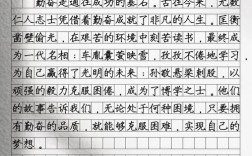 勤奋是通往成功的基石。古往今来，无数
仁人志士凭借着勤奋成就了非凡的人生，匡衡
凿壁偷光，在艰苦的环境中刻苦读书，最终成
为一代名相；车胤囊萤映雪，孜孜不倦地学习，
为自己赢得了光明的未来；孙敬悬梁刺股，以
顽强的毅力克服困倦，成为了博学之士，他们
的故事告诉我们，无论处于何种困境，只要拥
有勤奋的品质，就能够克服困难，实现自己的
梦想。